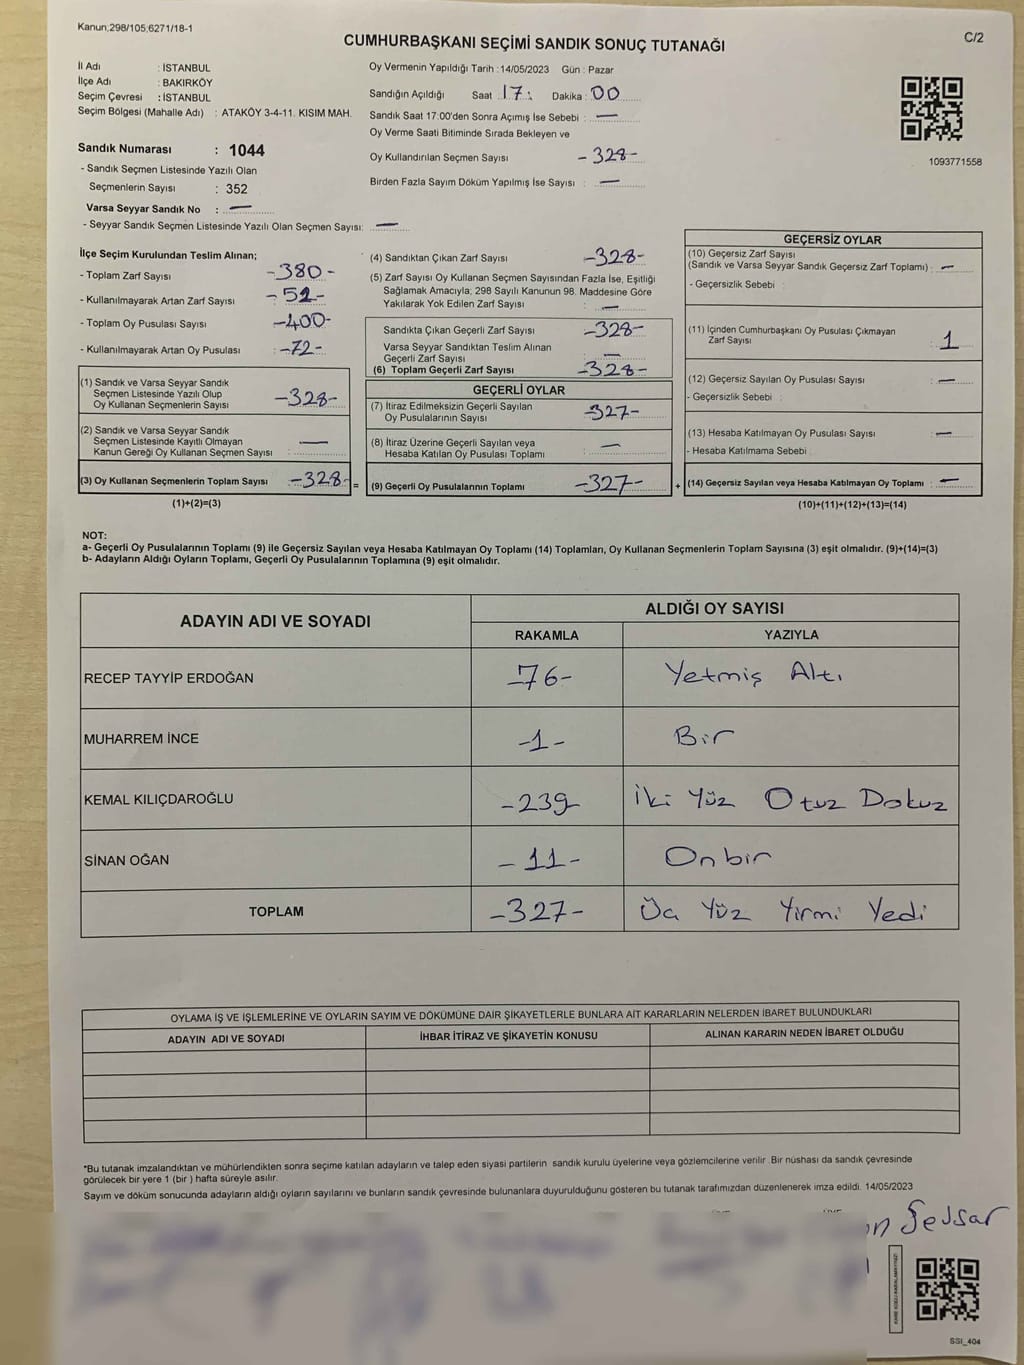 Kanun,298/105,6271/18-1
C/2
CUMHURBAŞKANI SEÇİMİ SANDIK SONUÇ TUTANAĞI
İl Adı : İSTANBUL
İlçe Adı : BAKIRKÖY
Seçim Çevresi : İSTANBUL
Seçim Bölgesi (Mahalle Adı) : ATAKÖY 3-4-11. KISIM MAH.
Sandık Numarası : 1044
- Sandık Seçmen Listesinde Yazılı Olan
Seçmenlerin Sayısı : 352
Varsa Seyyar Sandık No : —
- Seyyar Sandık Seçmen Listesinde Yazılı Olan Seçmen Sayısı: —
Oy Vermenin Yapıldığı Tarih : 14/05/2023 Gün : Pazar
Sandığın Açıldığı Saat : 17 : Dakika : 00
Sandık Saat 17:00'den Sonra Açımış İse Sebebi : —
Oy Verme Saati Bitiminde Sırada Bekleyen ve
Oy Kullandırılan Seçmen Sayısı - 328-
Birden Fazla Sayım Döküm Yapılmış İse Sayısı : —
1093771558
İlçe Seçim Kurulundan Teslim Alınan;
- Toplam Zarf Sayısı -380-
- Kullanılmayarak Artan Zarf Sayısı - 52-
- Toplam Oy Pusulası Sayısı -400-
- Kullanılmayarak Artan Oy Pusulası : -72-
(1) Sandık ve Varsa Seyyar Sandık
Seçmen Listesinde Yazılı Olup
Oy Kullanan Seçmenlerin Sayısı -328-
(2) Sandık ve Varsa Seyyar Sandık
Seçmen Listesinde Kayıtlı Olmayan
Kanun Gereği Oy Kullanan Seçmen Sayısı : —
(3) Oy Kullanan Seçmenlerin Toplam Sayısı -328-
(1)+(2)=(3)
=
(4) Sandıktan Çıkan Zarf Sayısı -328-
(5) Zarf Sayısı Oy Kullanan Seçmen Sayısından Fazla İse, Eşitliği
Sağlamak Amacıyla; 298 Sayılı Kanunun 98. Maddesine Göre
Yakılarak Yok Edilen Zarf Sayısı : —
Sandıkta Çıkan Geçerli Zarf Sayısı -328-
Varsa Seyyar Sandıktan Teslim Alınan
Geçerli Zarf Sayısı : —
(6) Toplam Geçerli Zarf Sayısı -328-
GEÇERLİ OYLAR
(7) İtiraz Edilmeksizin Geçerli Sayılan
Oy Pusulalarının Sayısı -327-
(8) İtiraz Üzerine Geçerli Sayılan veya
Hesaba Katılan Oy Pusulası Toplamı : —
(9) Geçerli Oy Pusulalarının Toplamı -327-
+
GEÇERSİZ OYLAR
(10) Geçersiz Zarf Sayısı
(Sandık ve Varsa Seyyar Sandık Geçersiz Zarf Toplamı) : —
- Geçersizlik Sebebi :
(11) İçinden Cumhurbaşkanı Oy Pusulası Çıkmayan
Zarf Sayısı : 1
(12) Geçersiz Sayılan Oy Pusulası Sayısı : —
- Geçersizlik Sebebi :
(13) Hesaba Katılmayan Oy Pusulası Sayısı : —
- Hesaba Katılmama Sebebi :
(14) Geçersiz Sayılan veya Hesaba Katılmayan Oy Toplamı : —
(10)+(11)+(12)+(13)=(14)
NOT:
a- Geçerli Oy Pusulalarının Toplamı (9) ile Geçersiz Sayılan veya Hesaba Katılmayan Oy Toplamı (14) Toplamları, Oy Kullanan Seçmenlerin Toplam Sayısına (3) eşit olmalıdır. (9)+(14)=(3)
b- Adayların Aldığı Oyların Toplamı, Geçerli Oy Pusulalarının Toplamına (9) eşit olmalıdır.
ADAYIN ADI VE SOYADI ALDIĞI OY SAYISI
RAKAMLA YAZIYLA
RECEP TAYYİP ERDOĞAN -76- Yetmiş Altı
MUHARREM İNCE -1- Bir
KEMAL KILIÇDAROĞLU -239 İki Yüz Otuz Dokuz
SİNAN OĞAN -11- Onbir
TOPLAM -327- Üç Yüz Yirmi Yedi
OYLAMA İŞ VE İŞLEMLERİNE VE OYLARIN SAYIM VE DÖKÜMÜNE DAİR ŞİKAYETLERLE BUNLARA AİT KARARLARIN NELERDEN İBARET BULUNDUKLARI
ADAYIN ADI VE SOYADI İHBAR İTİRAZ VE ŞİKAYETİN KONUSU ALINAN KARARIN NEDEN İBARET OLDUĞU
*Bu tutanak imzalandıktan ve mühürlendikten sonra seçime katılan adayların ve talep eden siyasi partilerin sandık kurulu üyelerine veya gözlemcilerine verilir. Bir nüshası da sandık çevresinde
görülecek bir yere 1 (bir ) hafta süreyle asılır.
Sayım ve döküm sonucunda adayların aldığı oyların sayılarını ve bunların sandık çevresinde bulunanlara duyurulduğunu gösteren bu tutanak tarafımızdan düzenlenerek imza edildi. 14/05/2023
SSI_404